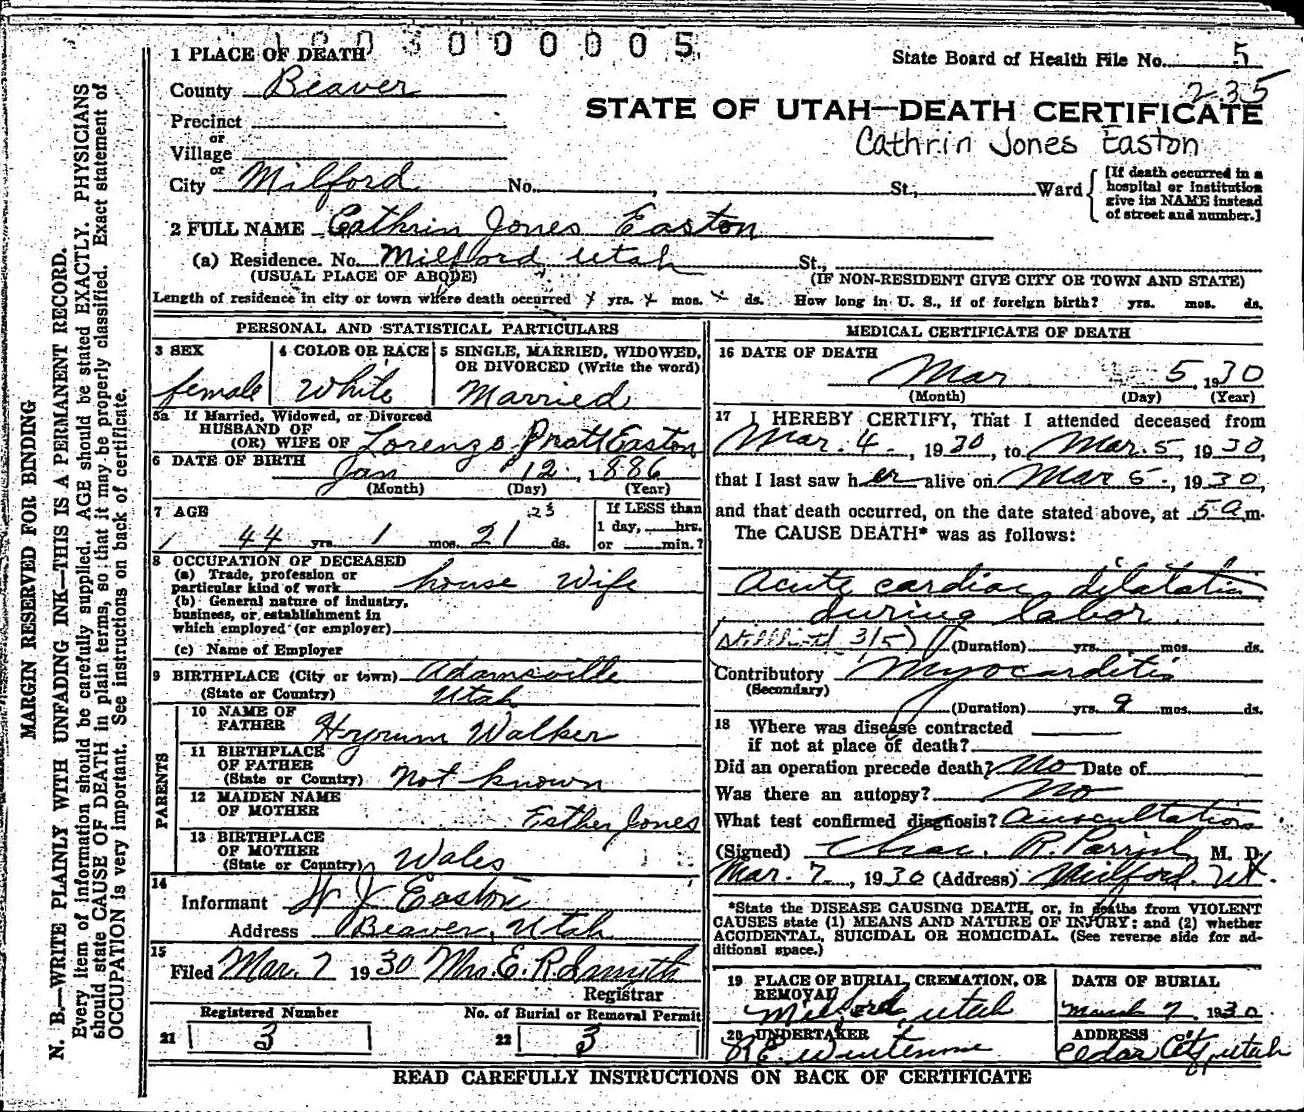 0 3 0 0 0 0 0 5
1 PLACE OF DEATH
State Board of Health File No. 5
County Beaver
235
STATE OF UTAH—DEATH CERTIFICATE
Precinct
or
Village
Cathrin Jones Easton
or
City Milford No. , St., Ward
[If death occurred in a hospital or institution give its NAME instead of street and number.]
2 FULL NAME Cathrin Jones Easton
(a) Residence. No. Milford Utah St.,
(USUAL PLACE OF ABODE) (IF NON-RESIDENT GIVE CITY OR TOWN AND STATE)
Length of residence in city or town where death occurred x yrs. x mos. x ds. How long in U. S., if of foreign birth? yrs. mos. ds.
PERSONAL AND STATISTICAL PARTICULARS
3 SEX
female
4 COLOR OR RACE
White
5 SINGLE, MARRIED, WIDOWED, OR DIVORCED (Write the word)
Married
5a If Married, Widowed, or Divorced
HUSBAND OF
(OR) WIFE OF Lorenzo Pratt Easton
6 DATE OF BIRTH Jan 12, 1886
(Month) (Day) (Year)
7 AGE 23
44 yrs. 1 mos. 21 ds.
If LESS than
1 day, hrs.
or min.?
8 OCCUPATION OF DECEASED
(a) Trade, profession or
particular kind of work house Wife
(b) General nature of industry,
business, or establishment in
which employed (or employer)
(c) Name of Employer
9 BIRTHPLACE (City or town) Adamsville
(State or Country) Utah
PARENTS
10 NAME OF
FATHER Hyrum Walker
11 BIRTHPLACE
OF FATHER
(State or Country) Not known
12 MAIDEN NAME
OF MOTHER Esther Jones
13 BIRTHPLACE
OF MOTHER
(State or Country) Wales
14
Informant W J Easton
Address Beaver, Utah
15
Filed Mar. 7 1930 Mrs. E. R. Smyth
Registrar
Registered Number No. of Burial or Removal Permit
21 3 22 3
MEDICAL CERTIFICATE OF DEATH
16 DATE OF DEATH
Mar 5, 1930
(Month) (Day) (Year)
17 I HEREBY CERTIFY, That I attended deceased from
Mar. 4, 1930, to Mar. 5, 1930,
that I last saw her alive on Mar 5, 1930,
and that death occurred, on the date stated above, at 5 a m.
The CAUSE DEATH* was as follows:
Acute cardiac dilatation
during labor
(Stillbirth 3/5) (Duration) yrs. mos. ds.
Contributory Myocarditis
(Secondary)
(Duration) yrs. 9 mos. ds.
18 Where was disease contracted
if not at place of death?
Did an operation precede death? No Date of
Was there an autopsy? No
What test confirmed diagnosis? Auscultation
(Signed) Chas. R. Parrish M. D.
Mar. 7, 1930 (Address) Milford. Ut.
*State the DISEASE CAUSING DEATH, or, in deaths from VIOLENT
CAUSES state (1) MEANS AND NATURE OF INJURY; and (2) whether
ACCIDENTAL, SUICIDAL OR HOMICIDAL. (See reverse side for ad-
ditional space.)
19 PLACE OF BURIAL, CREMATION, OR
REMOVAL
Milford, Utah
DATE OF BURIAL
March 7, 1930
20 UNDERTAKER
ADDRESS
Cedar City, Utah
READ CAREFULLY INSTRUCTIONS ON BACK OF CERTIFICATE
MARGIN RESERVED FOR BINDING
N. B.—WRITE PLAINLY WITH UNFADING INK—THIS IS A PERMANENT RECORD.
Every item of information should be carefully supplied. AGE should be stated EXACTLY. PHYSICIANS
should state CAUSE OF DEATH in plain terms, so that it may be properly classified. Exact statement of
OCCUPATION is very important. See instructions on back of certificate.